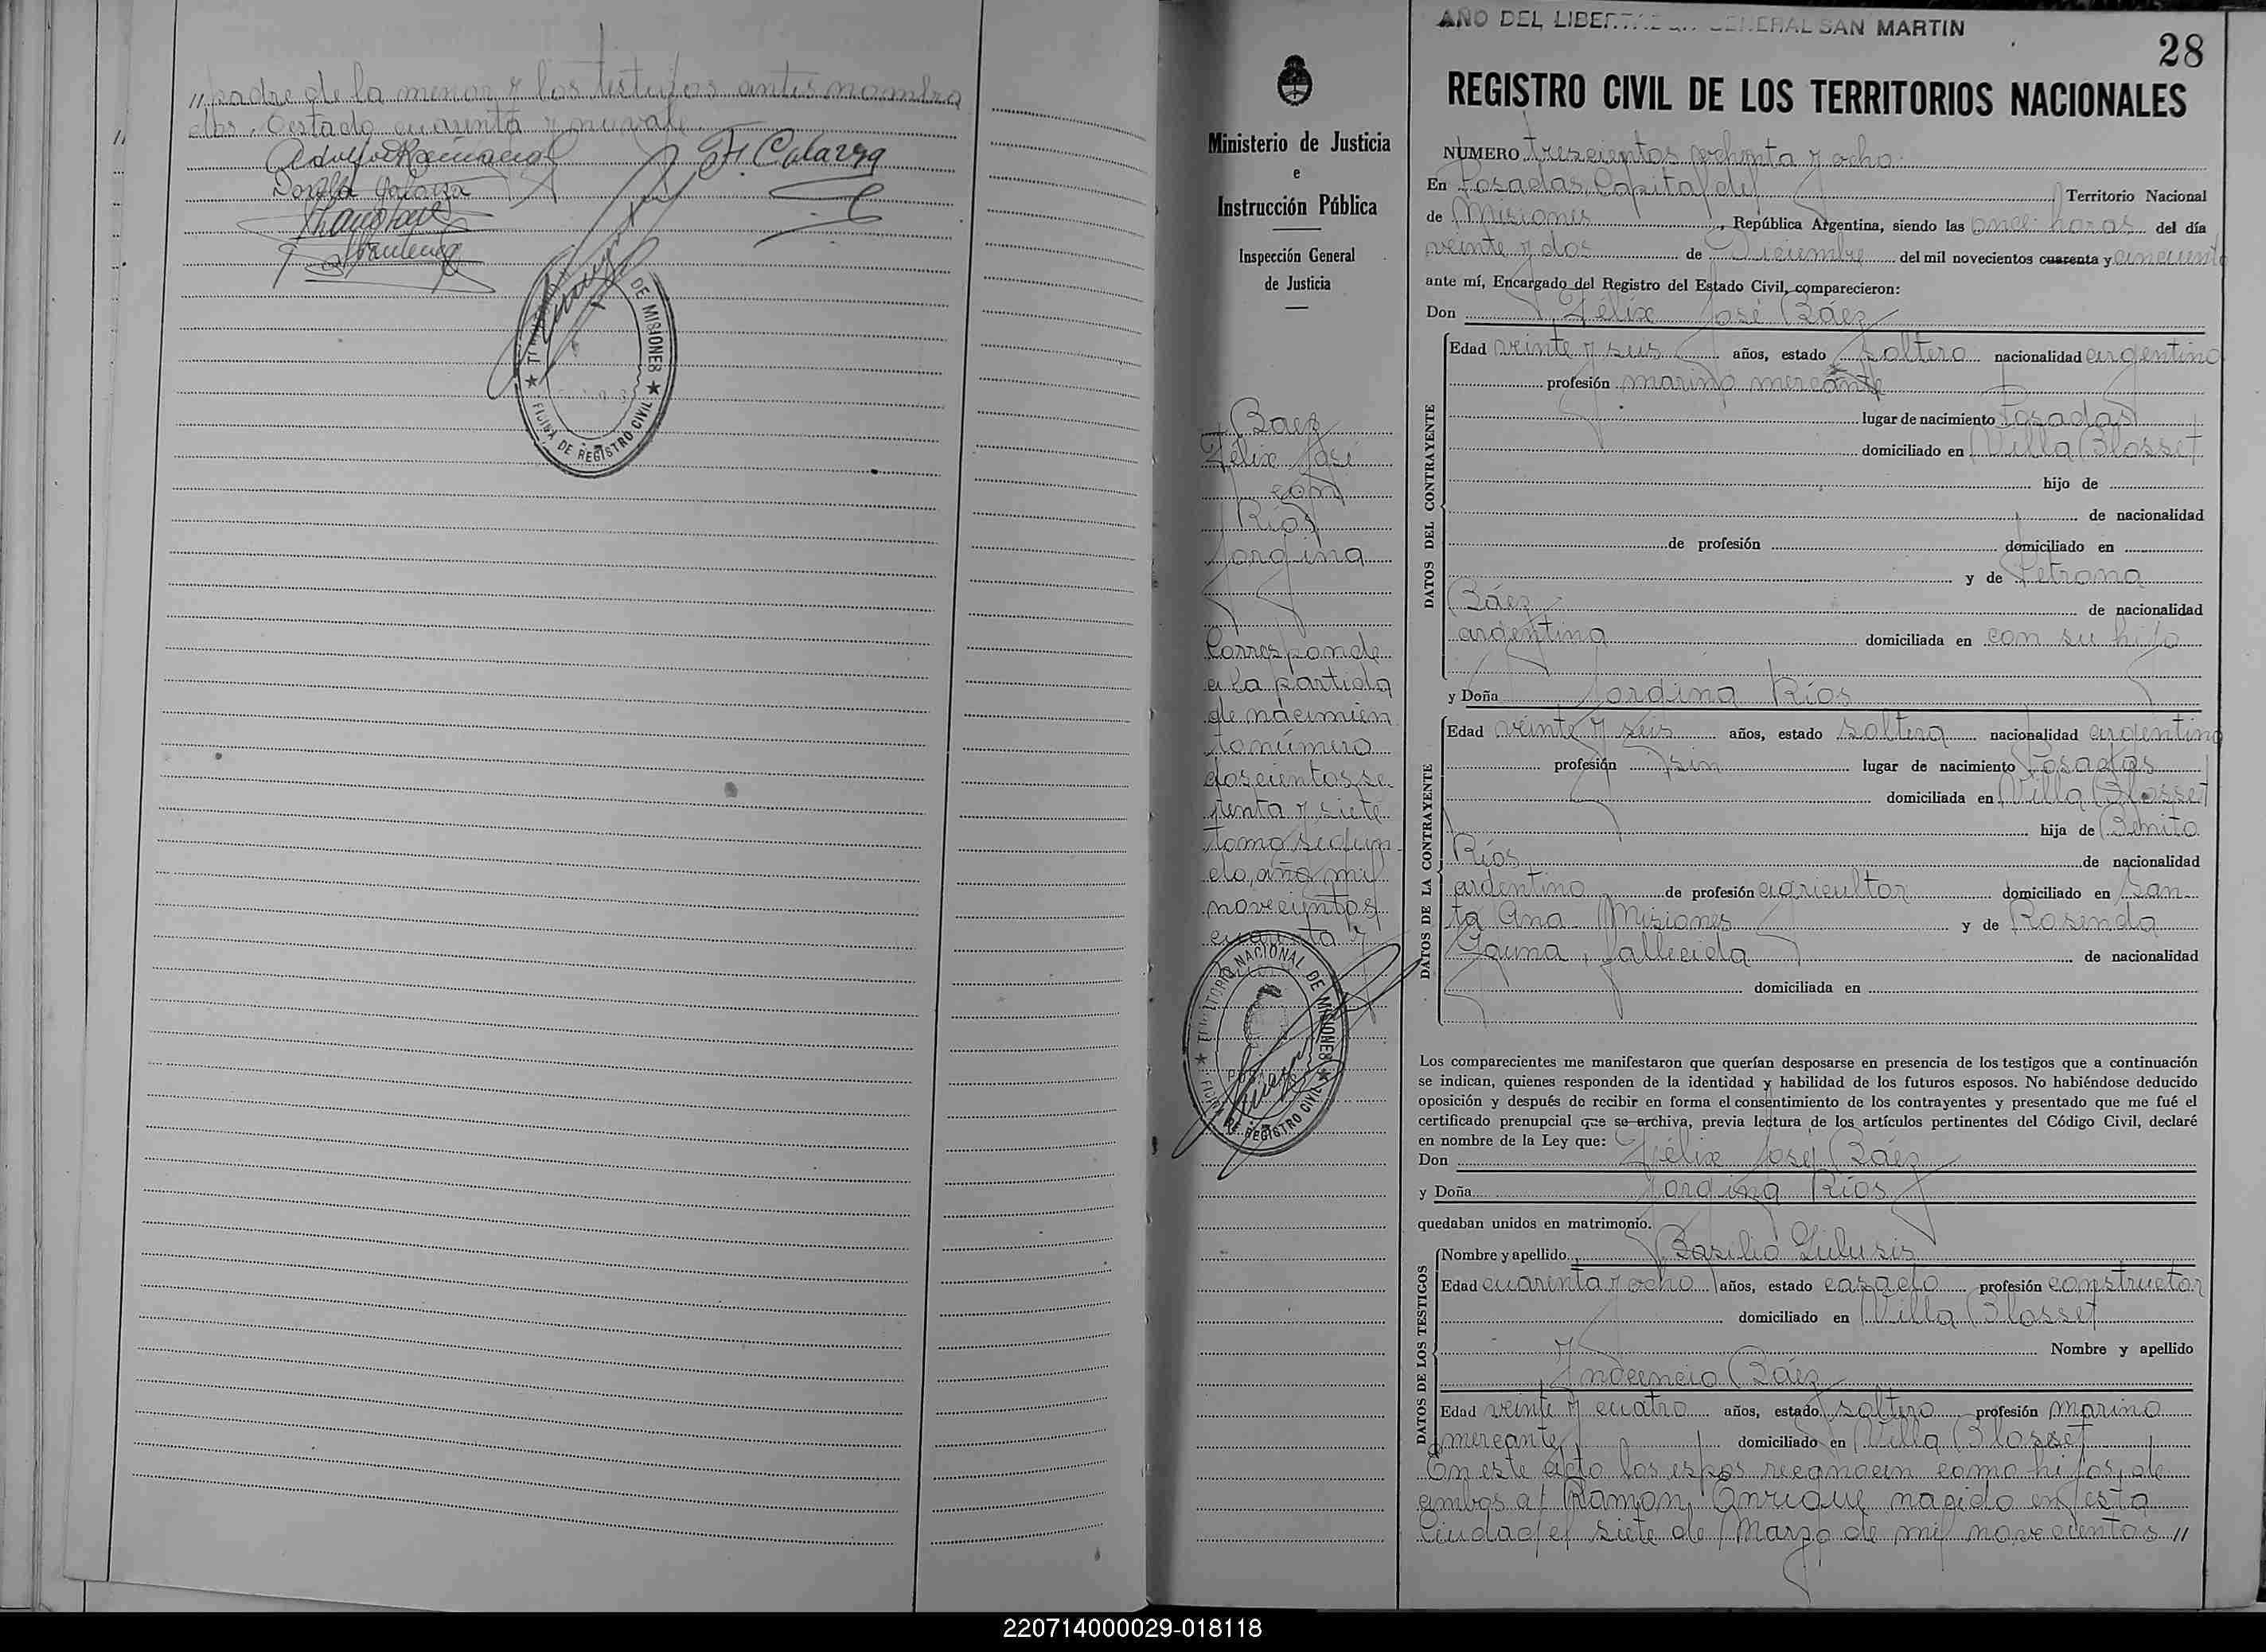 "padre de la menor y los testigos antes nombra
dos. Testado cuarenta y nueve
AÑO DEL LIBERTADOR GENERAL SAN MARTIN
28
REGISTRO CIVIL DE LOS TERRITORIOS NACIONALES
Ministerio de Justicia
e
Instrucción Pública
Inspección General
de Justicia
Baez
Félix José
con
Ríos
Jorgina
Corresponde
a la partida
de nacimien
to número
doscientos se
tenta y siete
tomo segun
do, año mil
novecientos
cuarenta y
TERRITORIO NACIONAL DE MISIONES
OFICINA DE REGISTRO CIVIL
NUMERO trescientos ochenta y ocho
En Posadas, Capital del Territorio Nacional
de Misiones, República Argentina, siendo las once horas del día
veinte y dos de Diciembre del mil novecientos cuarenta y cincuenta
ante mí, Encargado del Registro del Estado Civil, comparecieron:
Don Félix José Báez
DATOS DEL CONTRAYENTE
Edad veinte y seis años, estado soltero nacionalidad argentino
profesión marino mercante
lugar de nacimiento Posadas
domiciliado en Villa Blosset
hijo de
de nacionalidad
de profesión domiciliado en
y de Petrona
Báez de nacionalidad
argentina domiciliada en con su hijo
y Doña Jorgina Ríos
DATOS DE LA CONTRAYENTE
Edad veinte y seis años, estado soltera nacionalidad argentina
profesión sin lugar de nacimiento Posadas
domiciliada en Villa Blosset
hija de Benito
Ríos de nacionalidad
argentino de profesión agricultor domiciliado en San-
ta Ana Misiones y de Rosenda
Gauna, fallecida de nacionalidad
domiciliada en
Los comparecientes me manifestaron que querían desposarse en presencia de los testigos que a continuación
se indican, quienes responden de la identidad y habilidad de los futuros esposos. No habiéndose deducido
oposición y después de recibir en forma el consentimiento de los contrayentes y presentado que me fué el
certificado prenupcial que se archiva, previa lectura de los artículos pertinentes del Código Civil, declaré
en nombre de la Ley que:
Don Félix José Báez
y Doña Jorgina Ríos
quedaban unidos en matrimonio.
DATOS DE LOS TESTIGOS
Nombre y apellido Basilio
Edad cuarenta y ocho años, estado casado profesión constructor
domiciliado en Villa Blosset
Nombre y apellido
Báez
Edad veinte y cuatro años, estado soltero profesión marino
mercante domiciliado en Villa Blosset
En este acto los espos reconocen como hijos de
ambos a: Ramon Enrique nacido en esta
Ciudad el siete de Marzo de mil novecientos "
220714000029-018118